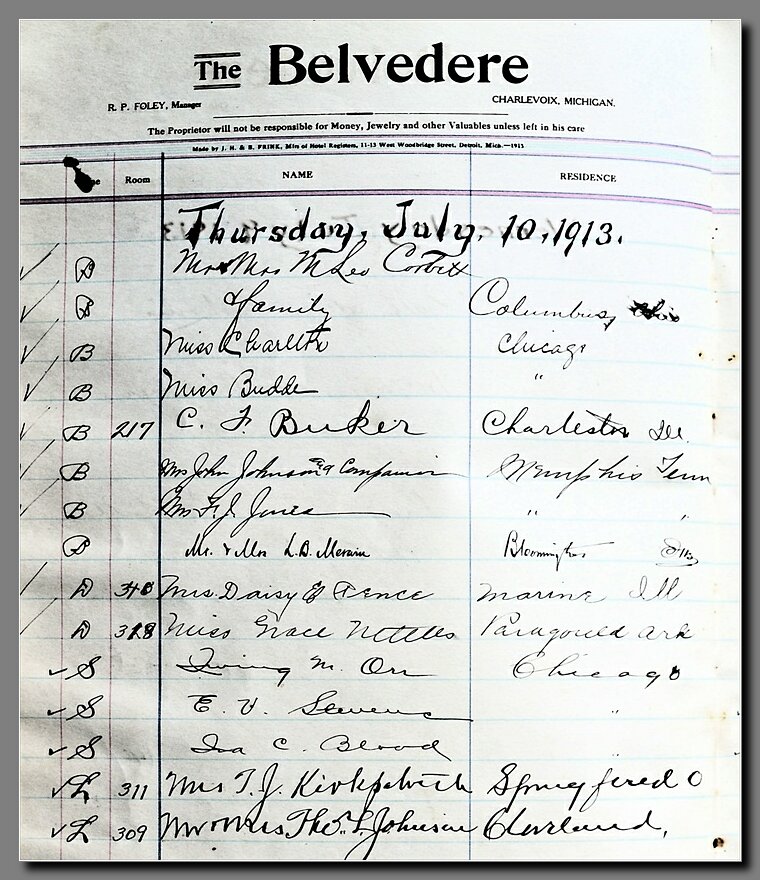 The Belvedere
R. P. FOLEY, Manager CHARLEVOIX, MICHIGAN.
The Proprietor will not be responsible for Money, Jewelry and other Valuables unless left in his care
Made by J. H. & B. FRINK, Mfrs of Hotel Registers, 11-13 West Woodbridge Street, Detroit, Mich.—1913
Room NAME RESIDENCE
Thursday, July, 10, 1913.
B Mr & Mrs M Leo Corbett
B & family Columbus, Ohio
B Miss Charlton Chicago
B Miss Budde "
B 217 C. F. Buker Charleston Ill.
B Mrs John Johnson and Companion Memphis Tenn
B Mrs F. J. Jones " "
B Mr. & Mrs L. B. Merwin Bloomington Ills
D Mrs. Daisy Fence Marine Ill
D 318 Miss Grace Nettles Paragould Ark
S Irving M. Orr Chicago
S E. V. Stevens "
S Ira C. Blood "
L 311 Mrs T. J. Kirkpatrick Springfield O
L 309 Mr & Mrs Thos. L. Johnson Cleveland,